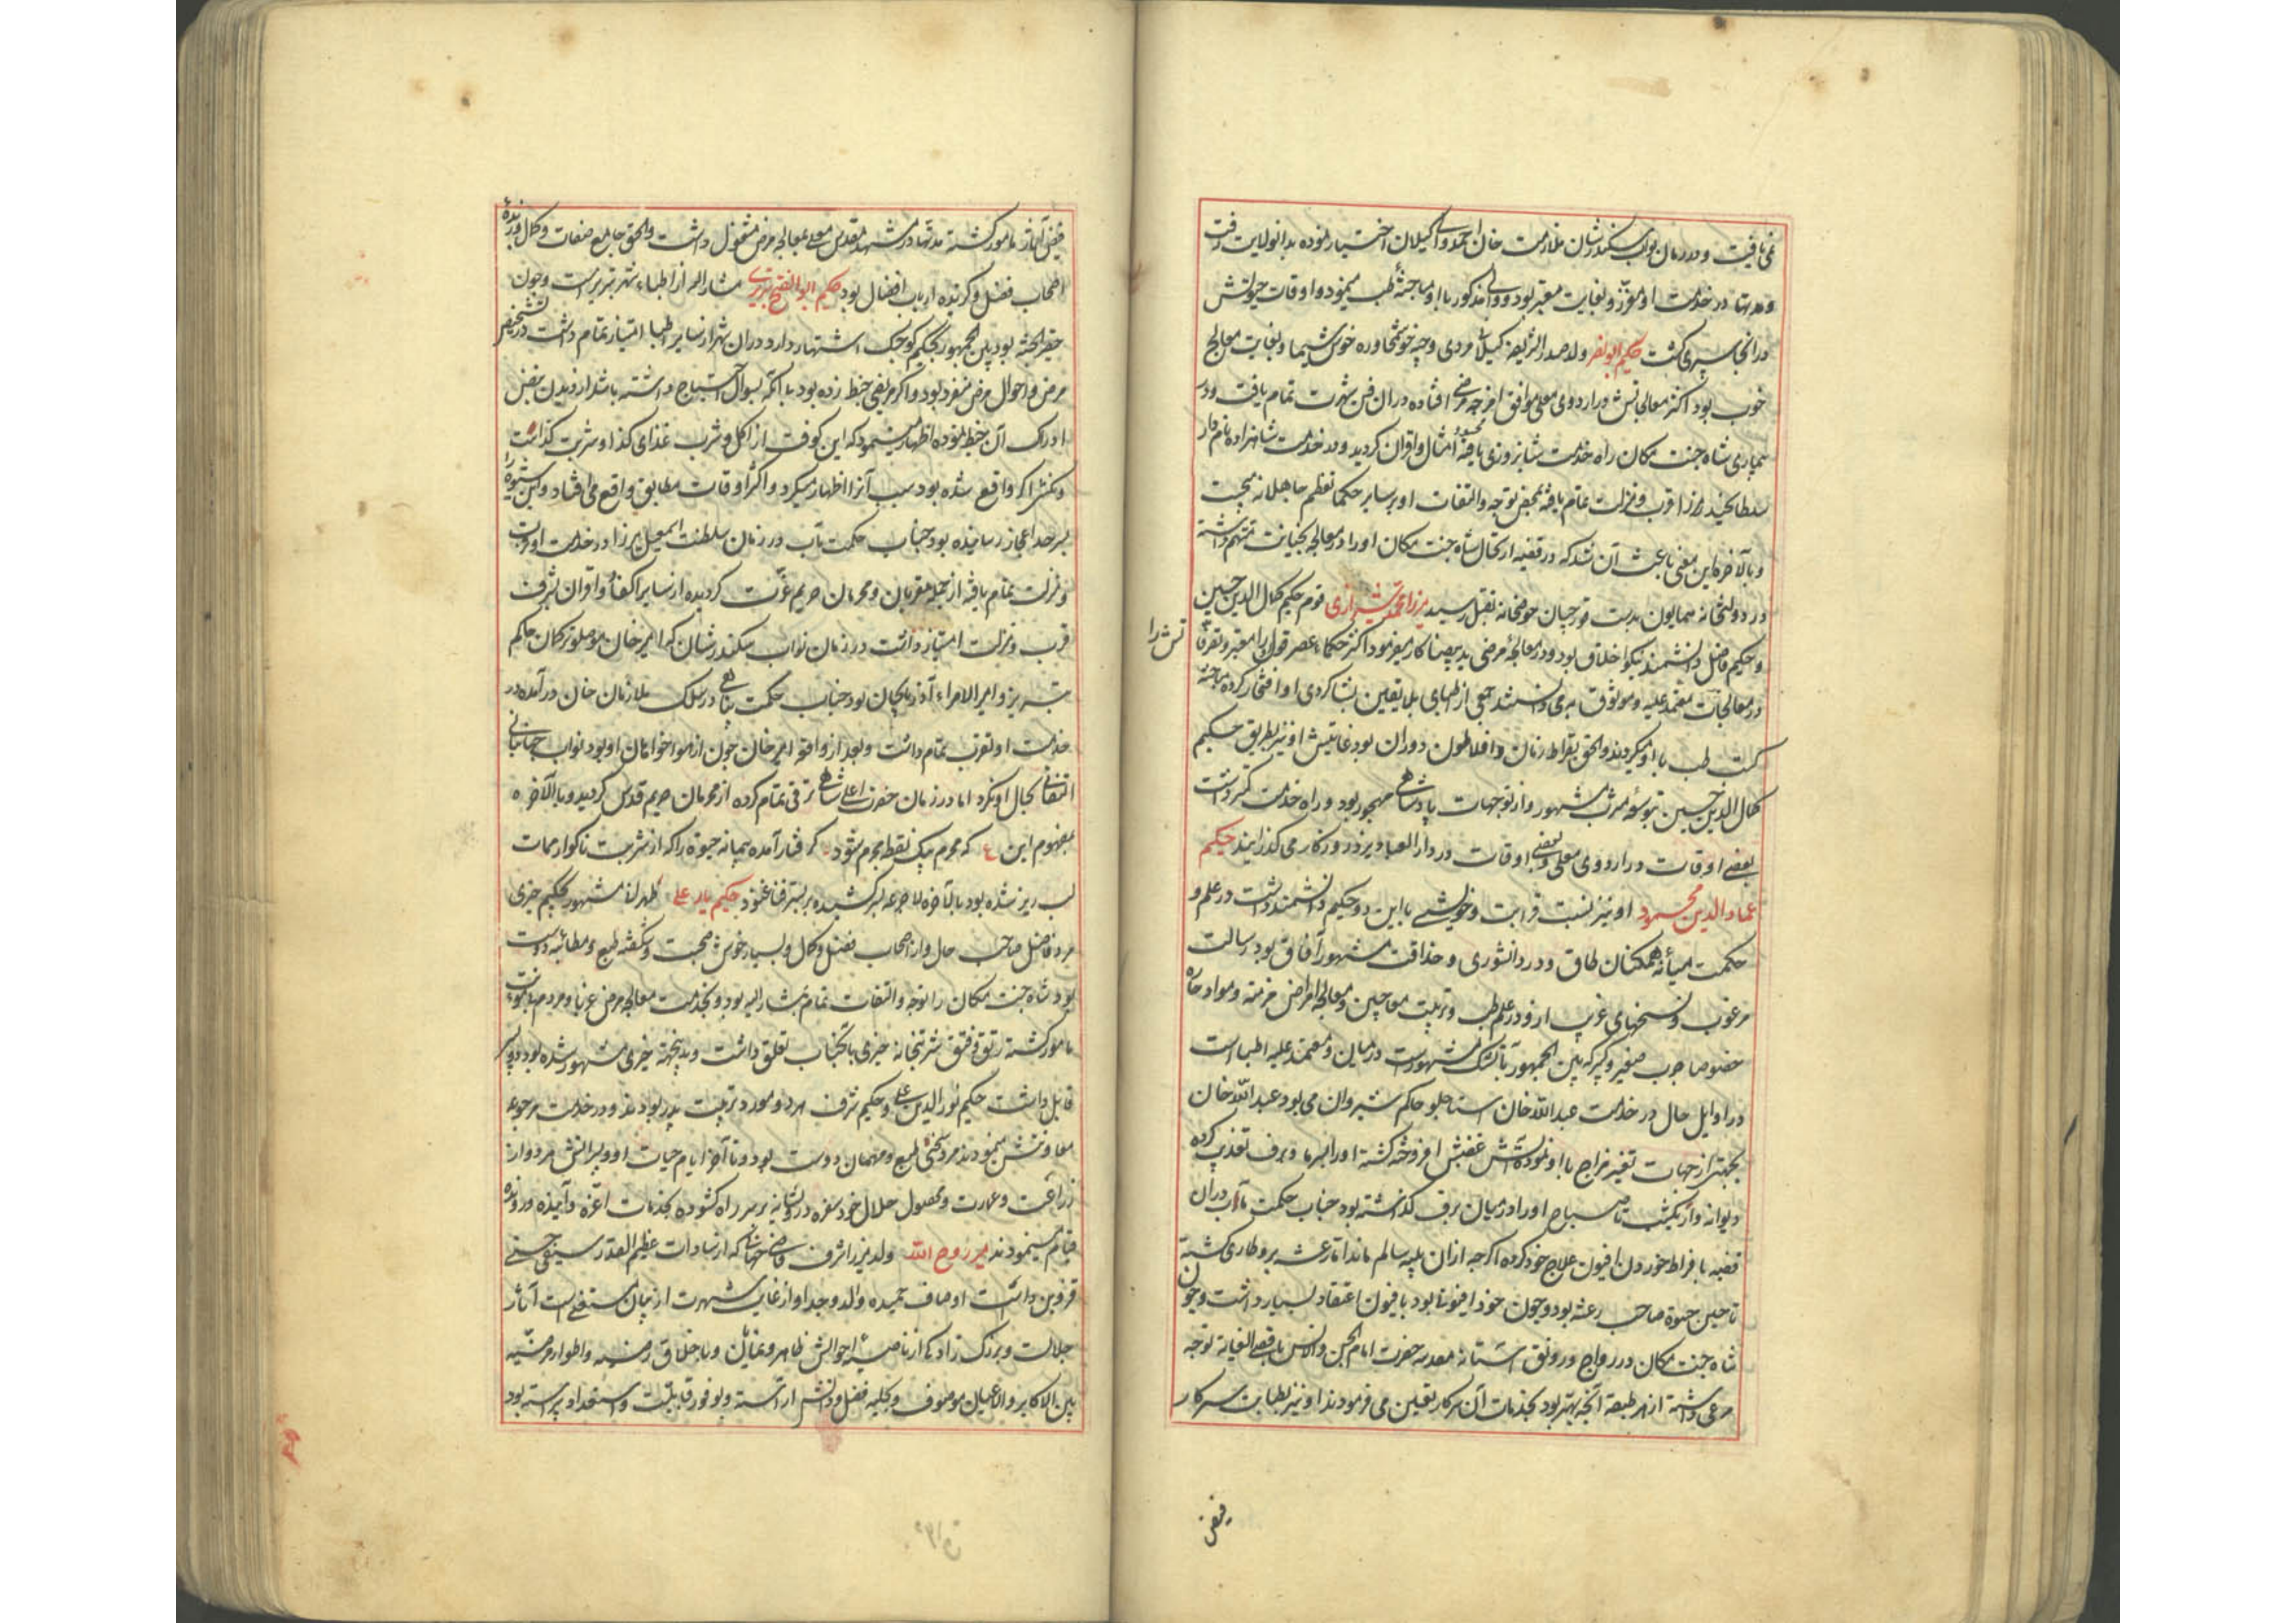 نمی‌یافت و در زمان نواب سکندرشان ملازمت خان احمد والی گیلان اختیار نموده بدانولایت رفت
و مدتها در خدمت او معزز و بغایت معتبر بود و والی مذکور با او مباحثهٔ طب مینمود و اوقات حیوتش
در آنجا سپری گشت حکیم ابونصر ولد صدر الشریعه گیلانی مردی وجیه خوش محاوره خوش سیما و بغایت معالج
خوب بود اکثر معالجاتش در اردوی معلی موافق امزجه مرضی افتاده در ان فن شهرت تمام یافت و در
بیماری شاه جنت مکان راه خدمت شبانروزی یافته محسود امثال و اقران گردید و در خدمت شاهزاده نامدار
سلطان حیدر میرزا قرب و منزلت تمام یافته بمحض توجه و التفات او بر سایر حکما تعظم جاهلانه میجست
و بالآخره این معنی باعث آن شد که در قضیه ارتحال شاه جنت مکان او را در معالجه بخیانت متهم داشته
در دولتخانه همایون بدست قورچیان در حوضخانه بقتل رسید میرزا محمد شیرازی قوم حکیم کمال الدین حسین
و حکیم فاضل دانشمند نیکو اخلاق بود و در معالجهٔ مرضی ید بیضا کار میفرمود اکثر حکماء عصر قول او را معتبر و تصرفا
تش را
در معالجات معتمد علیه و موثوق به میدانستند جمعی از اطبای بلا یقین بشاگردی او افتخار کرده مباحثه
کتب طب با او میکردند و الحق بقراط زمان و افلاطون دوران بود غایتش او نیز بطریق حکیم
کمال الدین حسین بتوسعه مشرب مشهور و از توجهات پادشاهی مهجور بود و راه خدمت کمتر داشت
بعضی اوقات در اردوی معلی و بعضی اوقات در دار العباد یزد روزگار می گذرانید حکیم
عماد الدین محمود او نیز نسبت قرابت و خویشی با این دو حکیم دانشمند داشت در علم و
حکمت میانهٔ همکنان طاق و در دانشوری و حذاقت مشهور آفاق بود رسالت
مرغوب و نسخهای غریب ازو در علم طب و ترتیب معاجین و معالجه امراض مزمنه و مواد حاره
خصوصا حرب صغیر و کبیر که بین الجمهور بآتشک مشهورست در میان و معتمد علیه اطباست
در اوایل حال در خدمت عبدالله خان استاجلو حاکم شیروان می بود عبدالله خان
بجهتی از جهات تغیر مزاج با او نموده آتش غضبش افروخته گشته او را بسرما و برف تعذیب کرده
دیوانه وار یکشب تا صباح او را در میان برف گذاشته بود جناب حکمت مآب در ان
قضیه بافراط خوردن افیون علاج خود کرده اگرچه از ان بلیه سالم ماند اما رعشه برو طاری گشته
تا حین حیوة صاحب رعشه بود و چون خود افیونی بود بافیون اعتقاد بسیار داشت و چون
شاه جنت مکان در رواج و رونق آستانه مقدسه حضرت امام الجن و الانس باقصی الغایه توجه
مرعی داشته از هر طبقه آنچه بهتر بود بخدمات آن سرکار تعیین می فرمودند او نیز بطبابت سرکار
فیض
فیض آثار مامور گشته مدتها در مشهد مقدس معلی بمعالجه مرضی مشغول داشت و الحق جامع صفات و کمال و زبدهٔ
اصحاب فضل و گزیده ارباب افضال بود حکیم ابو الفتح تبریزی مشار الیه از اطباء شهر تبریزست و چون
حقیر الجثه بود بین الجمهور بحکیم کوچک اشتهار دارد و در ان شهر از سایر اطبا امتیاز تمام داشت در تشخیص
مرض و احوال مرضی منفرد بود و اگر مریضی خبط زده بود با آنکه بسوال احتیاج داشته باشد از دیدن نبض
ادراک آن خبط نموده اظهار مینمود که این کوفت از اکل و شرب غذای کذا و شربت کذاست
و منشأ که واقع شده بود سبب آنرا اظهار میکرد و اکثر اوقات مطابق واقع می افتاد و این شیوه را
بسرحد اعجاز رسانیده بود جناب حکمت مآب در زمان سلطنت اسمعیل میرزا در خدمت او قرب
و منزلت تمام یافته از جمله مقربان و محرمان حریم عزت گردیده از سایر اکفا و اقران بشرف
قرب و منزلت امتیاز داشت در زمان نواب سکندرشان که امیر خان موصلو ترکمان حاکم
تبریز و امیر الامراء آذربایجان بود جناب حکمت پناهی در سلک ملازمان خان درآمده در
خدمت او تقرب تمام داشت و بعد از واقعه امیر خان چون از هواخواهان او بود نواب جهانبانی
التفاتی بحال او نکرد اما در زمان حضرت اعلی شاهی ترقی تمام کرده از محرمان حریم قدس گردید و بالآخره
بمفهوم این ع که محرم بیک نقطه مجرم شود گرفتار آمده پیمانه حیوة را که از شربت ناگوار ممات
لب ریز شده بود بالآخره لاجرعه بسر کشیده بر بستر فنا غنود حکیم یار علی طهرانی مشهور بحکیم خیری
مرد فاضل صاحب حال و از اصحاب فضل و کمال و بسیار خوش صحبت و شکفته طبع و مطائبه دوست
بود شاه جنت مکان را توجه و التفات تمام بمشار الیه بود و بخدمت معالجه مرضی غربا و مردم بیمؤنت
مامور گشته رتق و فتق شربتخانه خیری بآنجناب تعلق داشت و بدینجهته بخیری مشهور شده بود دو پسر
قابل داشت حکیم نور الدین علی و حکیم شرف هر دو مورد تربیت پدر بودند و در خدمت مرجوعه
معاونتش مینمودند مرد سخی طبع و مهمان دوست بود و تا آخر ایام حیات او و پسرانش هر دو از
زراعت و عمارت و محصول حلال خود سفره درویشانه بر سر راه گشوده بخدمات اعزه و آینده و رونده
قیام مینمودند میر روح الله ولد میرزا شرف قاضی جهانی که از سادات عظیم القدر سیفی حسنی
قزوین داشت اوصاف حمیده والد و جد او از غایت شهرت از بیان مستغنی است آثار
جلالت و بزرگ زادگی از ناصیهٔ احوالش ظاهر و نمایان و باخلاق رضیه و اطوار مرضیه
بین الاکابر و الاعیان موصوف و بحلیه فضل و دانش آراسته و بوفور قابلیت و استعداد پیراسته بود